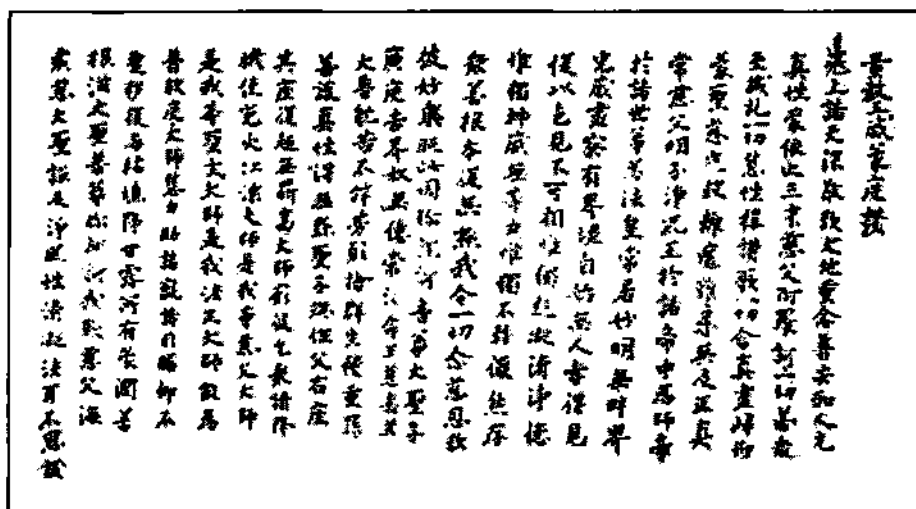 景教三威蒙度讚
无上諸天深敬歎大地重念普安和人元
真性蒙依止三才慈父阿羅訶一切善衆
至誠礼一切慧性稱讚歌一切含真盡歸仰
蒙聖慈光救離魔難尋無及正真
常慈父明子淨風王於諸帝中為師帝
於諸世尊為法皇常居妙明無畔界
光威盡察有界疆自始無人嘗得見
復以色見不可相惟獨絶凝清淨德
惟獨神威無等力惟獨不轉儼然存
衆善根本復無極我今一切念慈恩歎
彼妙樂照此國彌施訶普尊大聖子
廣度苦界救無億常活命王慈喜羔
大普耽苦不辭勞願捨群生積重罪
善護真性得無繇聖子端任父右座
其座復超無鼎高大師願彼乞衆請降
栰使免火江漂大師是我等慈父大師
是我等聖主大師是我法王大師能為
普救度大師慧力助諸羸諸目瞻仰不
蹔移復与枯燋降甘露所有蒙潤善
根滋大聖普尊弥施訶我歎慈父海
藏慈大聖謙及淨風性清凝法耳不思議